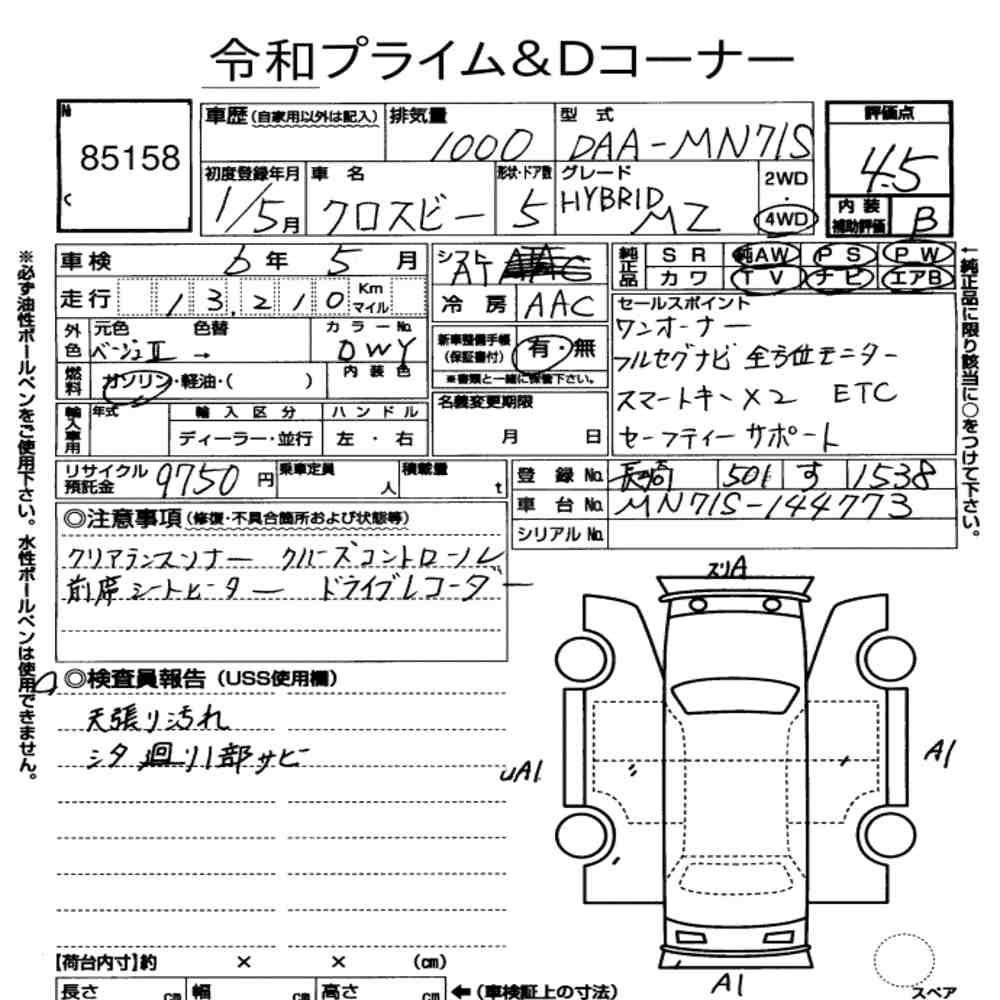 令和プライム&Dコーナー
№ 85158
車歴(自家用以外は記入) 排気量 1000 型式 DAA-MN71S
評価点 4.5
初度登録年月 1/5月 車名 クロスビー 形状・ドア数 5 グレード HYBRID MZ 2WD・4WD
内装補助評価 B
車検 6年5月 シフト AT
純正品 SR 純AW PS PW
カワ TV ナビ エアB
走行 13,210 Km マイル
冷房 AAC
セールスポイント
外色 元色 色替 カラーNo.
ベージュII → DWY
ワンオーナー
新車整備手帳(保証書付) 有・無
フルセグナビ 全方位モニター
燃料 ガソリン・軽油・( ) 内装色
※書類と一緒に保管下さい。
スマートキー×2 ETC
輸入車用 年式 輸入区分 ハンドル
ディーラー・並行 左・右
名義変更期限
月 日
セーフティーサポート
リサイクル預託金 9750円 乗車定員 人 積載量 t
登録No. 長崎 501 す 1538
車台No. MN71S-144773
シリアルNo.
◎注意事項(修復・不具合箇所および状態等)
クリアランスソナー クルーズコントロール
前席シートヒーター ドライブレコーダー
◎検査員報告(USS使用欄)
天張り汚れ
シタ廻り1部サビ
スリA
UA1
A1
A1
【荷台内寸】約 × × (cm)
長さ cm 幅 cm 高さ cm ←(車検証上の寸法)
スペア
※必ず油性ボールペンをご使用下さい。水性ボールペンは使用できません。
←純正品に限り該当に○をつけて下さい。